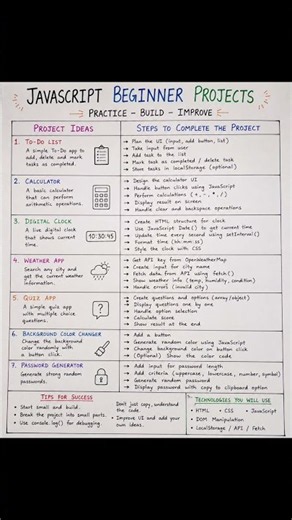 JAVASCRIPT BEGINNER PROJECTS
PRACTICE - BUILD - IMPROVE
PROJECT IDEAS
STEPS TO COMPLETE THE PROJECT
1. TO-DO LIST
A simple To-Do app to
add, delete and mark
tasks as completed.
→ Plan the UI (input, add button, list)
→ Take input from user
→ Add task to the list
→ Mark task as completed / delete task
→ Store tasks in localStorage (optional)
2. CALCULATOR
A basic calculator
that can perform
arithmetic operations.
→ Design the calculator UI
→ Handle button clicks using JavaScript
→ Perform calculations (+, -, *, /)
→ Display result on screen
→ Handle clear and backspace operations
3. DIGITAL CLOCK
A live digital clock
that shows current
time.
10:30:45
→ Create HTML structure for clock
→ Use JavaScript Date() to get current time
→ Update time every second using setInterval()
→ Format time (hh:mm:ss)
→ Style the clock with CSS
4. WEATHER APP
Search any city and
get the current weather
information.
→ Get API key from OpenWeatherMap
→ Create input for city name
→ Fetch data from API using fetch()
→ Show weather info (temp, humidity, condition)
→ Handle errors (invalid city)
5. QUIZ APP
A simple quiz app
with multiple choice
questions.
?
→ Create questions and options (array/object)
→ Display questions one by one
→ Handle option selection
→ Calculate score
→ Show result at the end
6. BACKGROUND COLOR CHANGER
Change the background
color randomly with
a button click.
→ Add a button
→ Generate random color using JavaScript
→ Change background color on button click
→ (Optional) Show the color code
7. PASSWORD GENERATOR
Generate strong random
passwords.
→ Add input for password length
→ Add criteria (uppercase, lowercase, number, symbol)
→ Generate random password
→ Display password with copy to clipboard option
TIPS FOR SUCCESS
• Start small and build.
• Break the project into small parts.
• Use console.log() for debugging.
Don't just copy, understand
the code.
• Improve UI and add your
own ideas.
TECHNOLOGIES YOU WILL USE
• HTML • CSS • JavaScript
• DOM Manipulation
• LocalStorage / API / Fetch